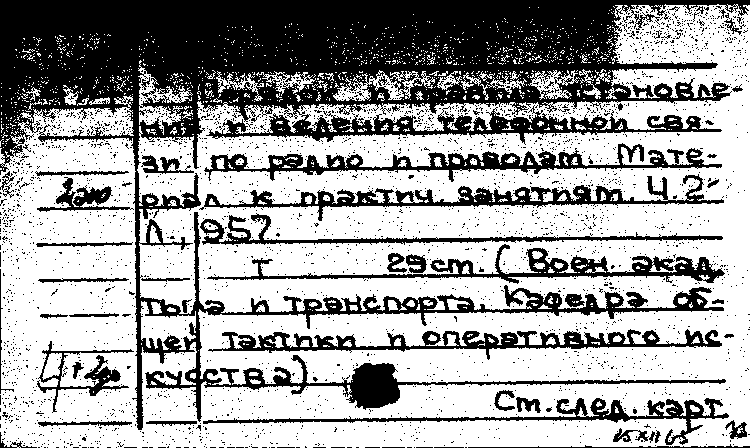 Порядок и правила установле-
ния и ведения телефонной свя-
зи по радио и проводам. Мате-
риал к практич. занятиям. Ч.2
Л., 957.
т 29 ст. (Воен. акад
тыла и транспорта. Кафедра об-
щей тактики и оперативного ис-
кусства).
Ст. след. карт